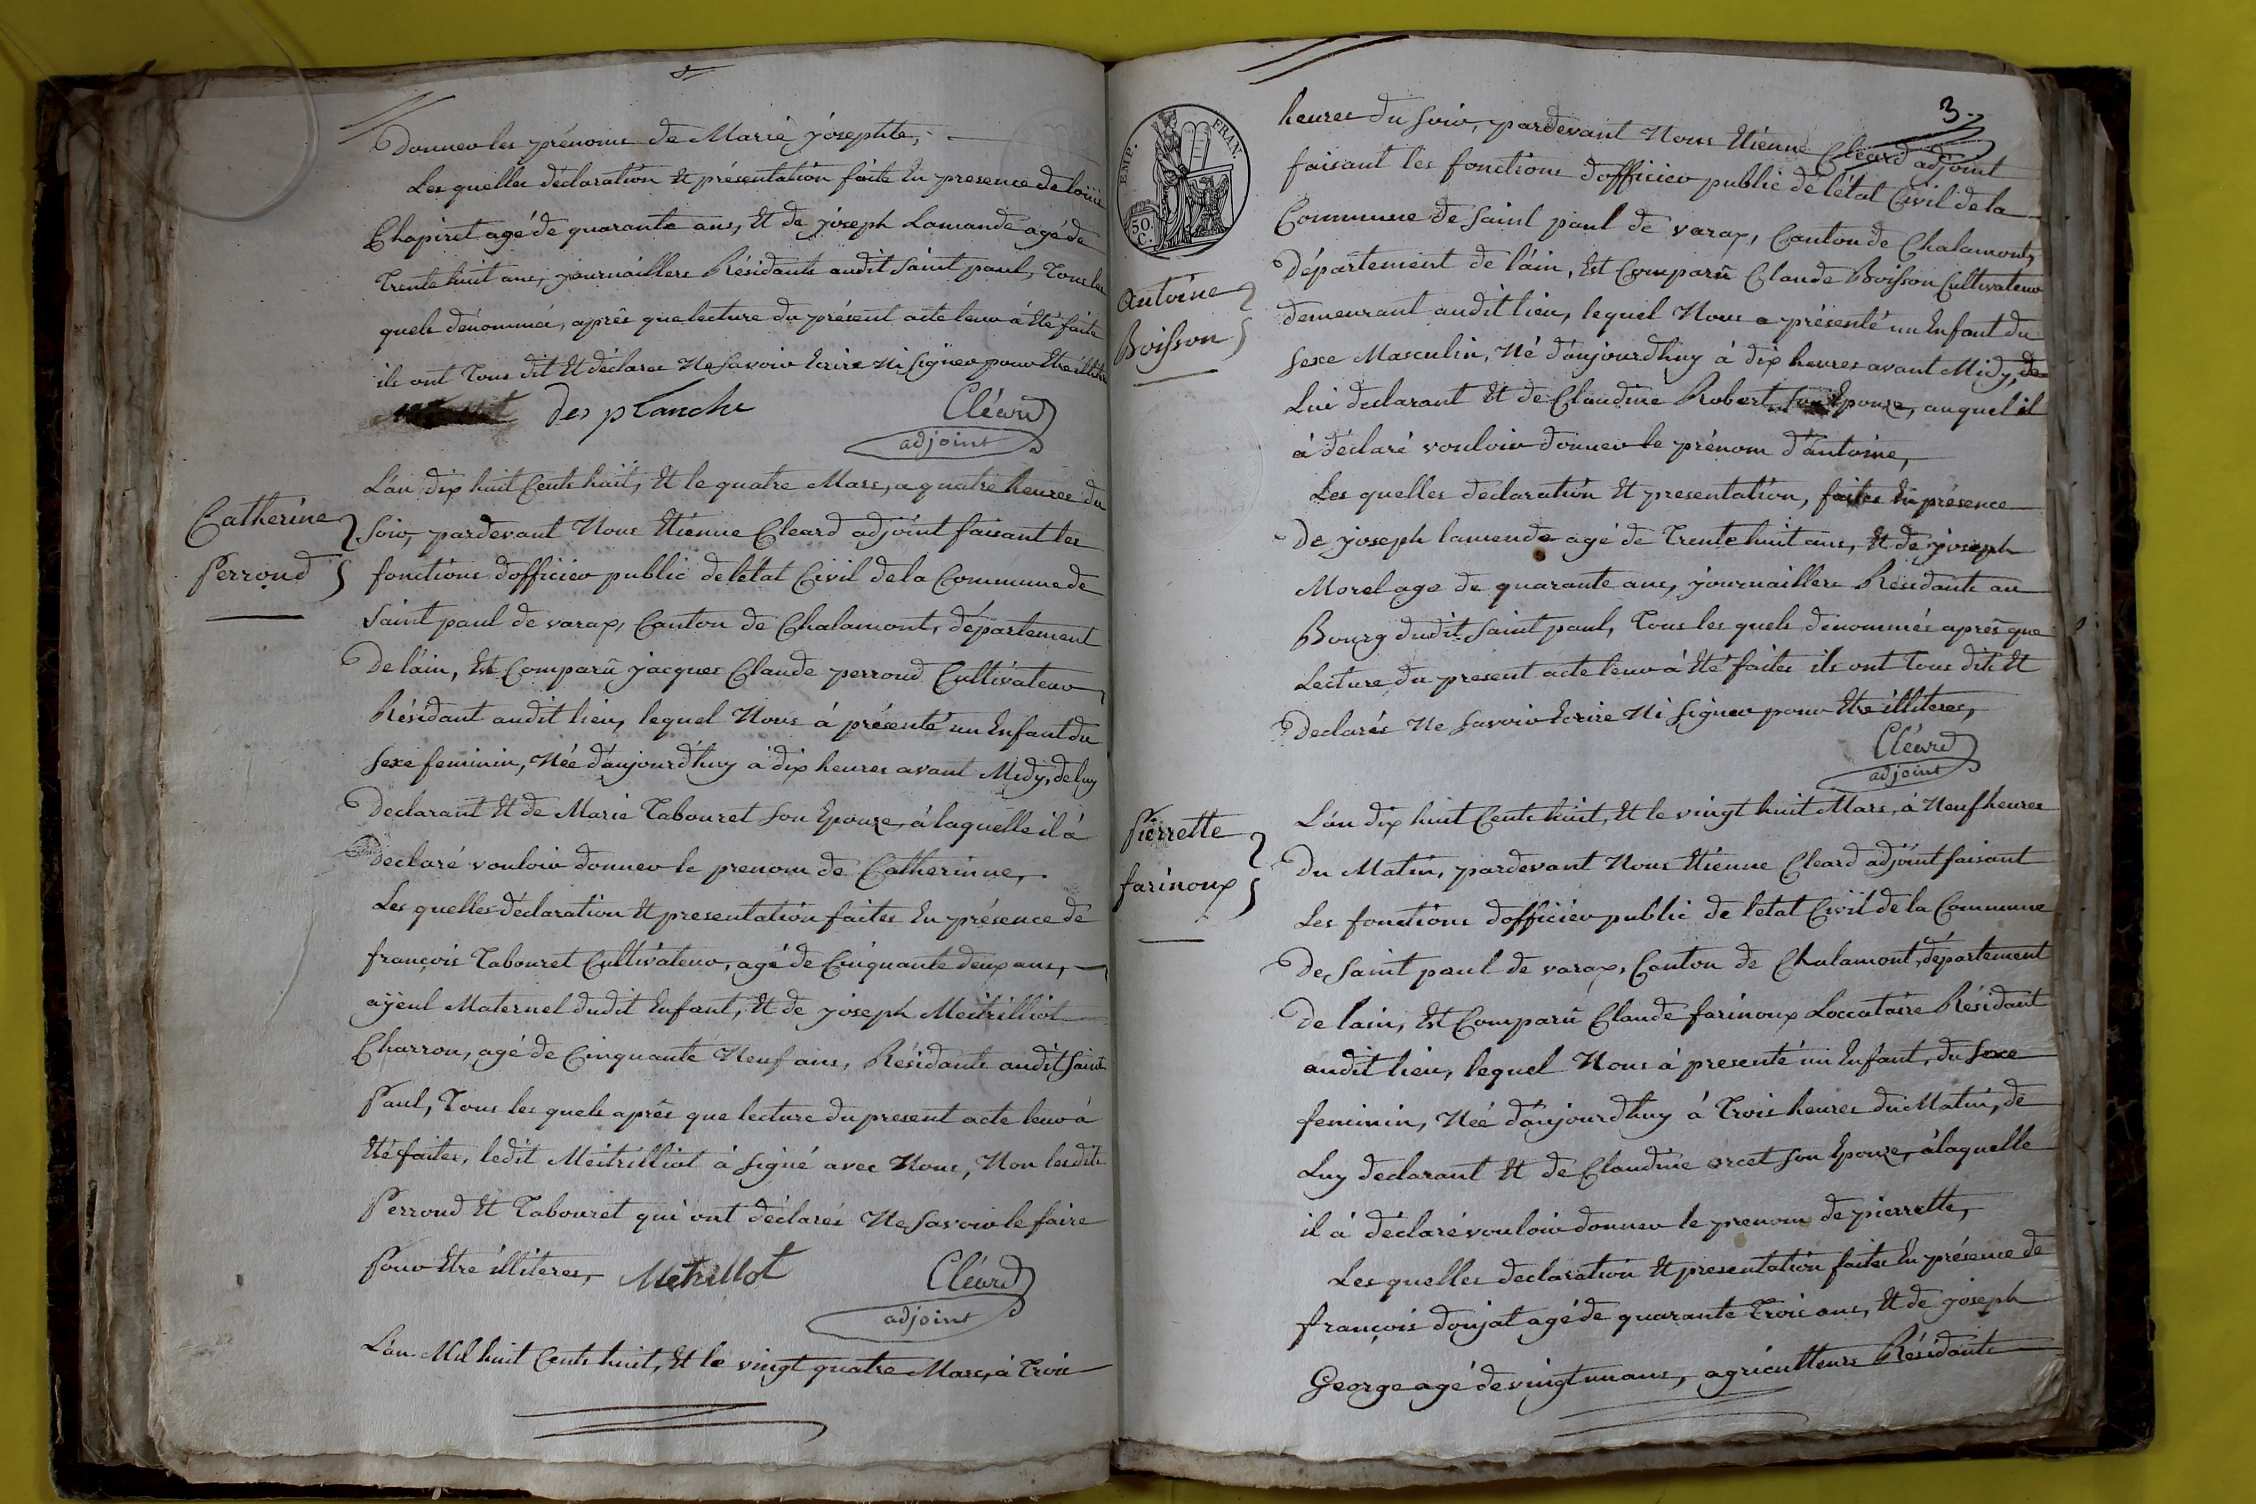 Donner les prénoms de Marie josephte,
Les quelles déclaration Et présentation faite En presence de
Chapiret agé de quarante ans, Et de joseph Lamande agé de
Trente huit ans, journailliers Résidants audit Saint paul, Tous les
quels dénommés, après que lecture du présent acte leur à Eté faite
ils ont Tous dit Et déclarer Ne Savoir Ecrire Ni Signer pour Etre
des planche
Cléard
adjoint
Catherine
Perroud
L'an dix huit Cents huit, Et le quatre Mars, a quatre heures du
Soir, pardevant Nous Etienne Cleard adjoint faisant les
fonctions d'officier public de l'état Civil de la Commune de
Saint paul de varax, Canton de Chalamont, département
De l'ain, Est Comparû jacques Claude perroud Cultivateur
Résidant audit lieu, lequel Nous à présenté un Enfant du
Sexe feminin, Née d'aujourd'huy à dix heures avant Midy, de luy
Declarant Et de Marie Tabouret Son Epouze, à laquelle il à
Declaré vouloir donner le prenom de Catherinne,
Les quelles déclaration Et presentation faites En présence de
françois Tabouret Cultivateur, agé de Cinquante deux ans,
ayeul Maternel dudit Enfant, Et de joseph Meitrilliot
Charron, agé de Cinquante Neuf ans, Résidants audit Saint
Paul, Tous les quels après que lecture du present acte leur à
Eté faites, ledit Meitrilliot à Signé avec Nous, Non lesdits
Perroud Et Tabouret qui ont déclarés Ne Savoir le faire
Pour Etre illiteres,
Metrillot
Cléard
adjoint
L'an Mil huit Cents huit, Et le vingt quatre Mars, à Trois
3
EMP. FRAN.
50.
C.
heures du Soir, pardevant Nous Etienne Cleard adjoint
faisant les fonctions d'officier public de l'état Civil de la
Commune de Saint paul de varax, Canton de Chalamont,
Département de l'ain, Est Comparû Claude Boisson Cultivateur
Antoine
Boisson
demeurant audit lieu, lequel Nous a présenté un Enfant du
Sexe Masculin, Né d'aujourd'huy à dix heures avant Midy, de
Lui declarant Et de Claudine Robert Son Epouze, auquel il
à déclaré vouloir donner le prénom d'antoine,
Les quelles déclaration Et presentation, faites En présence
De joseph lamende agé de Trente huit ans, Et de joseph
Morel age de quarante ans, journailliers Residants au
Bourg dudit Saint paul, Tous les quels dénommés après que
Lecture du present acte leur à Eté faites ils ont Tous dits Et
Declarés Ne Savoir Ecrire Ni Signer pour Etre illiteres,
Cléard
adjoint
Pierrette
farinoux
L'an dix huit Cents huit, Et le vingt huit Mars, à Neuf heures
Du Matin, pardevant Nous Etienne Cleard adjoint faisant
Les fonctions d'officier public de l'etat Civil de la Commune
De Saint paul de varax, Canton de Chalamont, département
De l'ain, Est Comparû Claude farinoux Loccataire Résidant
audit lieu, lequel Nous à presenté un Enfant, du Sexe
feminin, Née d'aujourd'huy à Trois heures du Matin, de
Luy declarant Et de Claudine orcet Son Epouze, à laquelle
il à déclaré vouloir donner le prenom de pierrette,
Les quelles declaration Et presentation faites En présence de
françois donjat agé de quarante Trois ans, Et de joseph
George agé de vingt un ans, agriculteurs Résidants